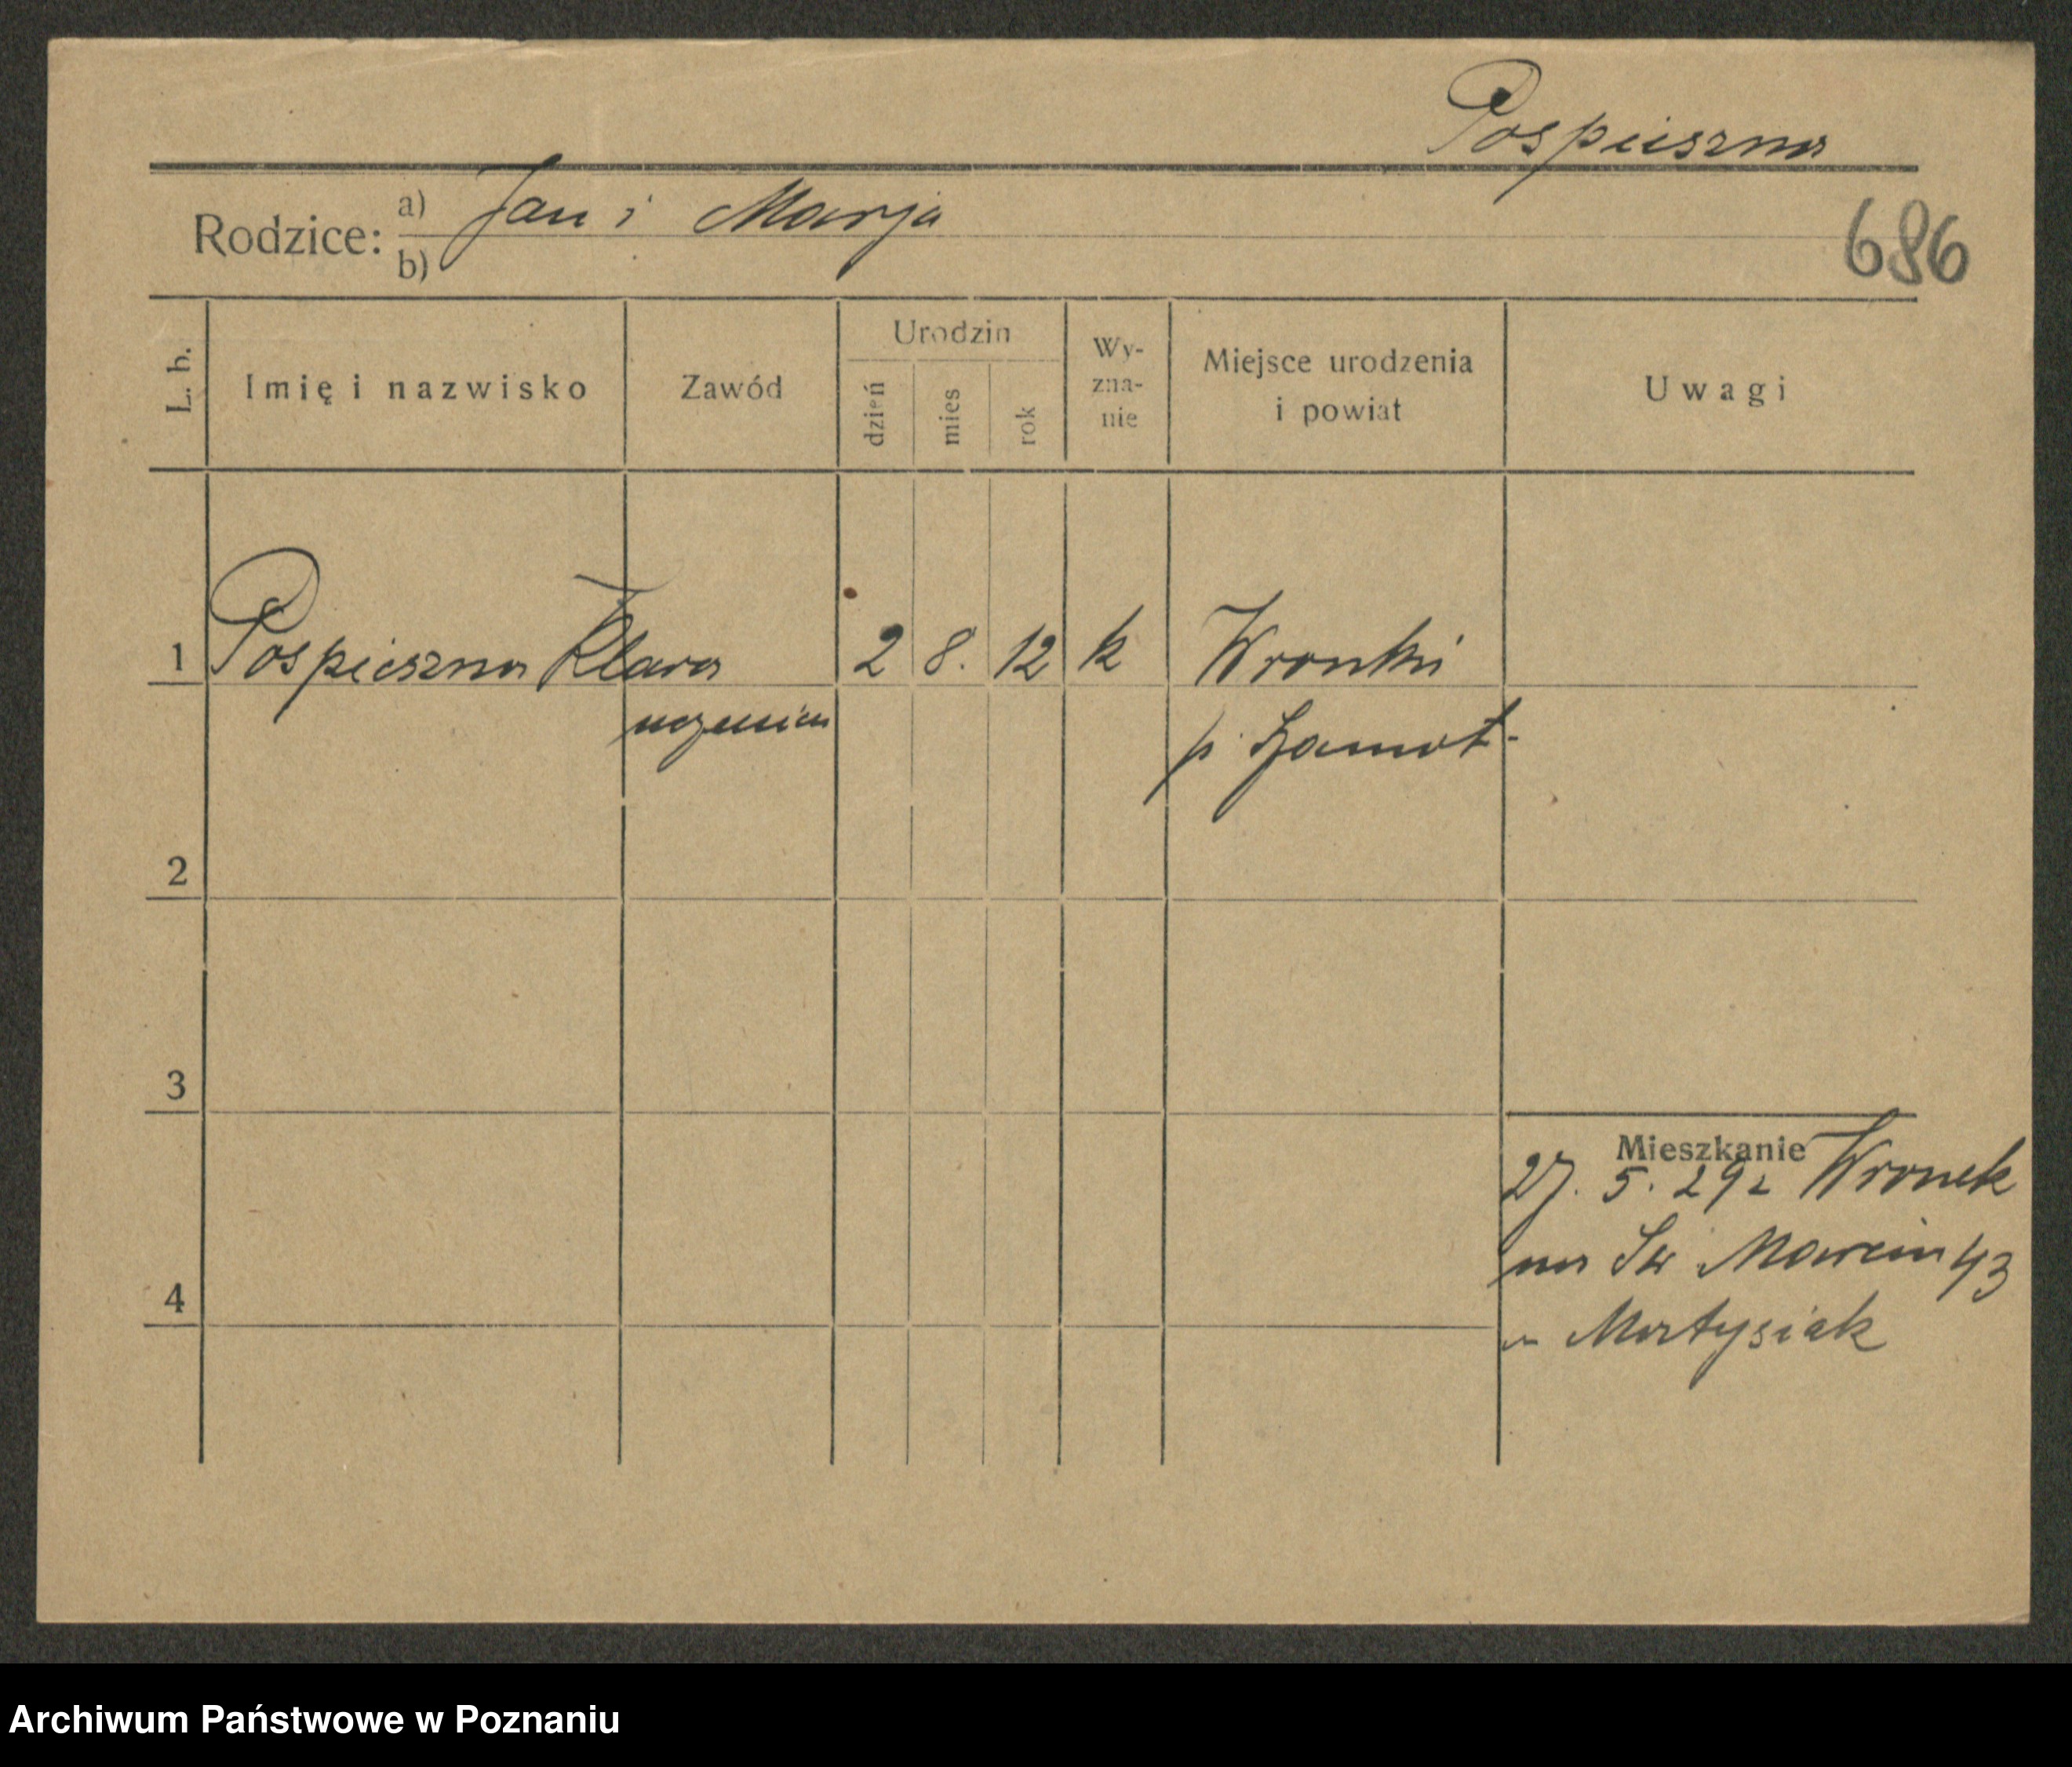 Pospieszna
Rodzice: a) Jan i Marja
b)
686
L. b.
Imię i nazwisko
Zawód
Urodzin
dzień
mies
rok
Wy-
zna-
nie
Miejsce urodzenia
i powiat
Uwagi
1 Pospieszna Klara 2 8. 12 k Wronki
uczenica
p. Szamot.
2
3
4
Mieszkanie
27. 5. 29 z Wronek
na Św Marcin 43
u Martysiak
Archiwum Państwowe w Poznaniu